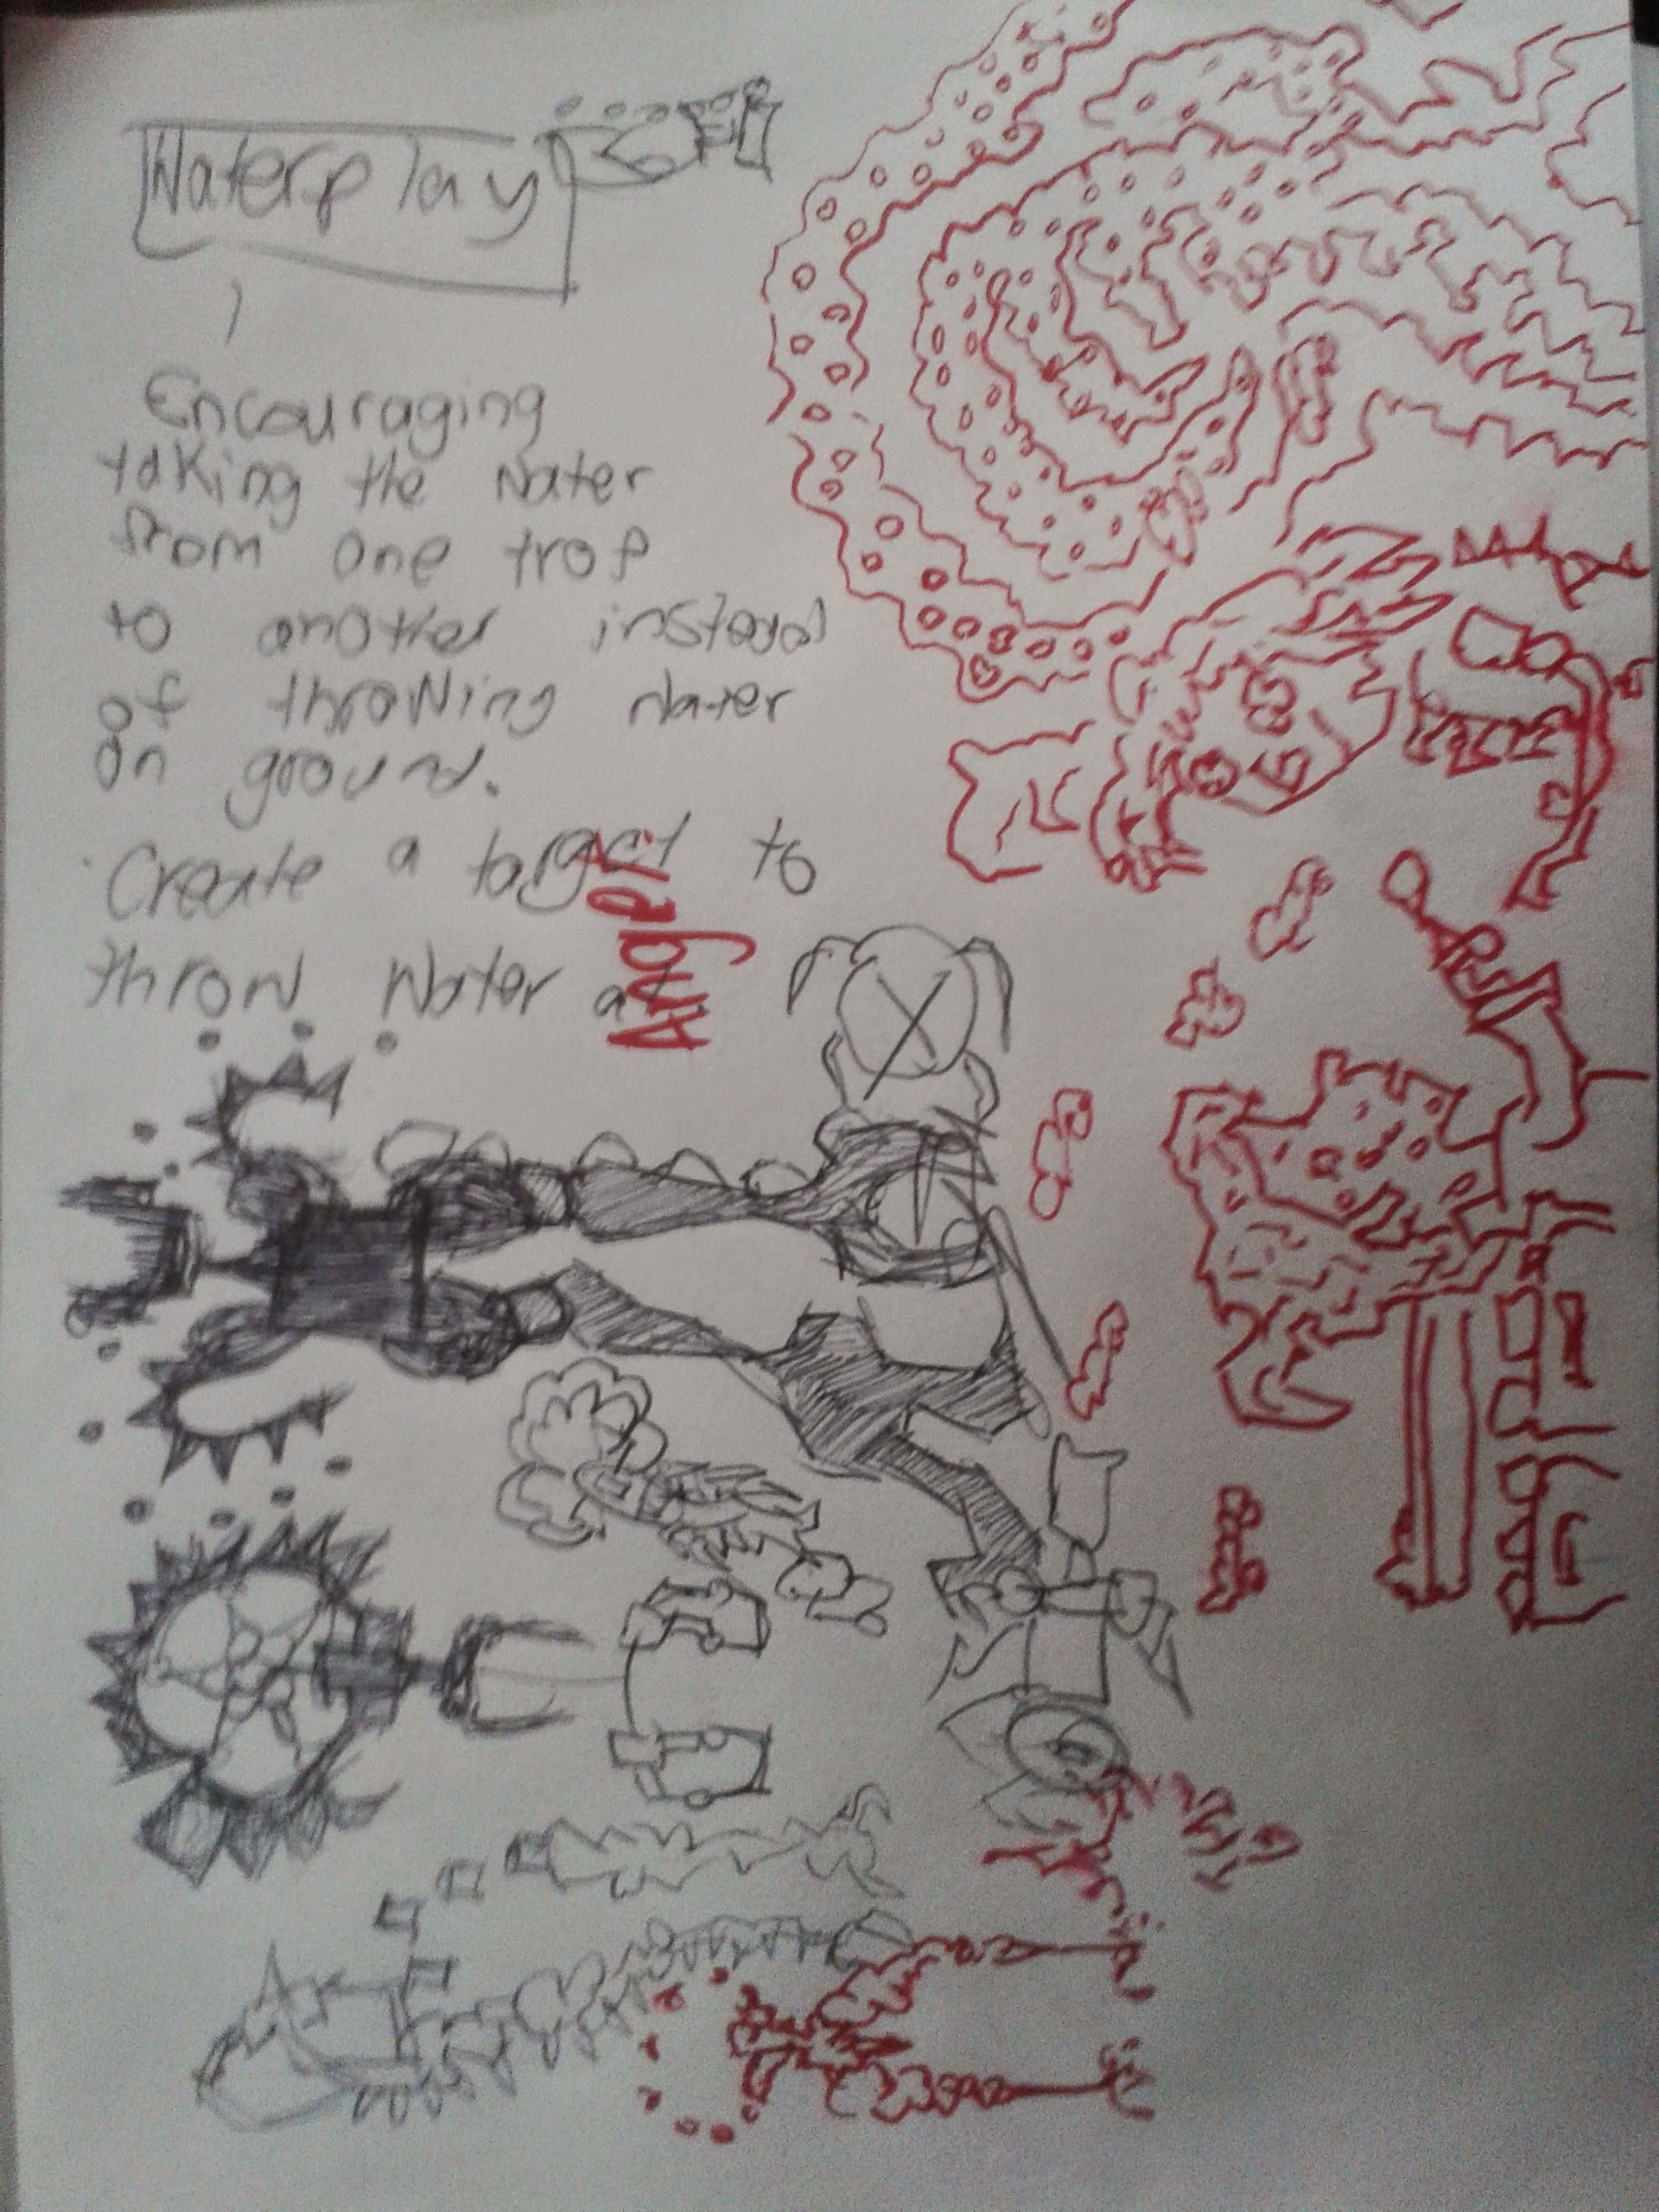 Waterplay
Encouraging
taking the Water
from one trof
to another instead
of throwing Water
on ground.
Create a target to
throw Water at.
Anger